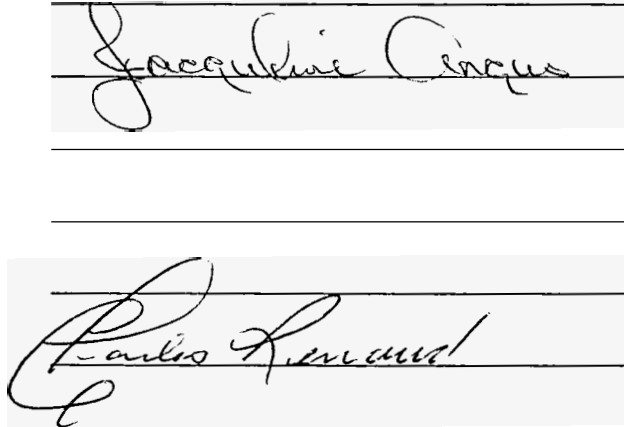 Jacqueline Angus
Charles Renaud